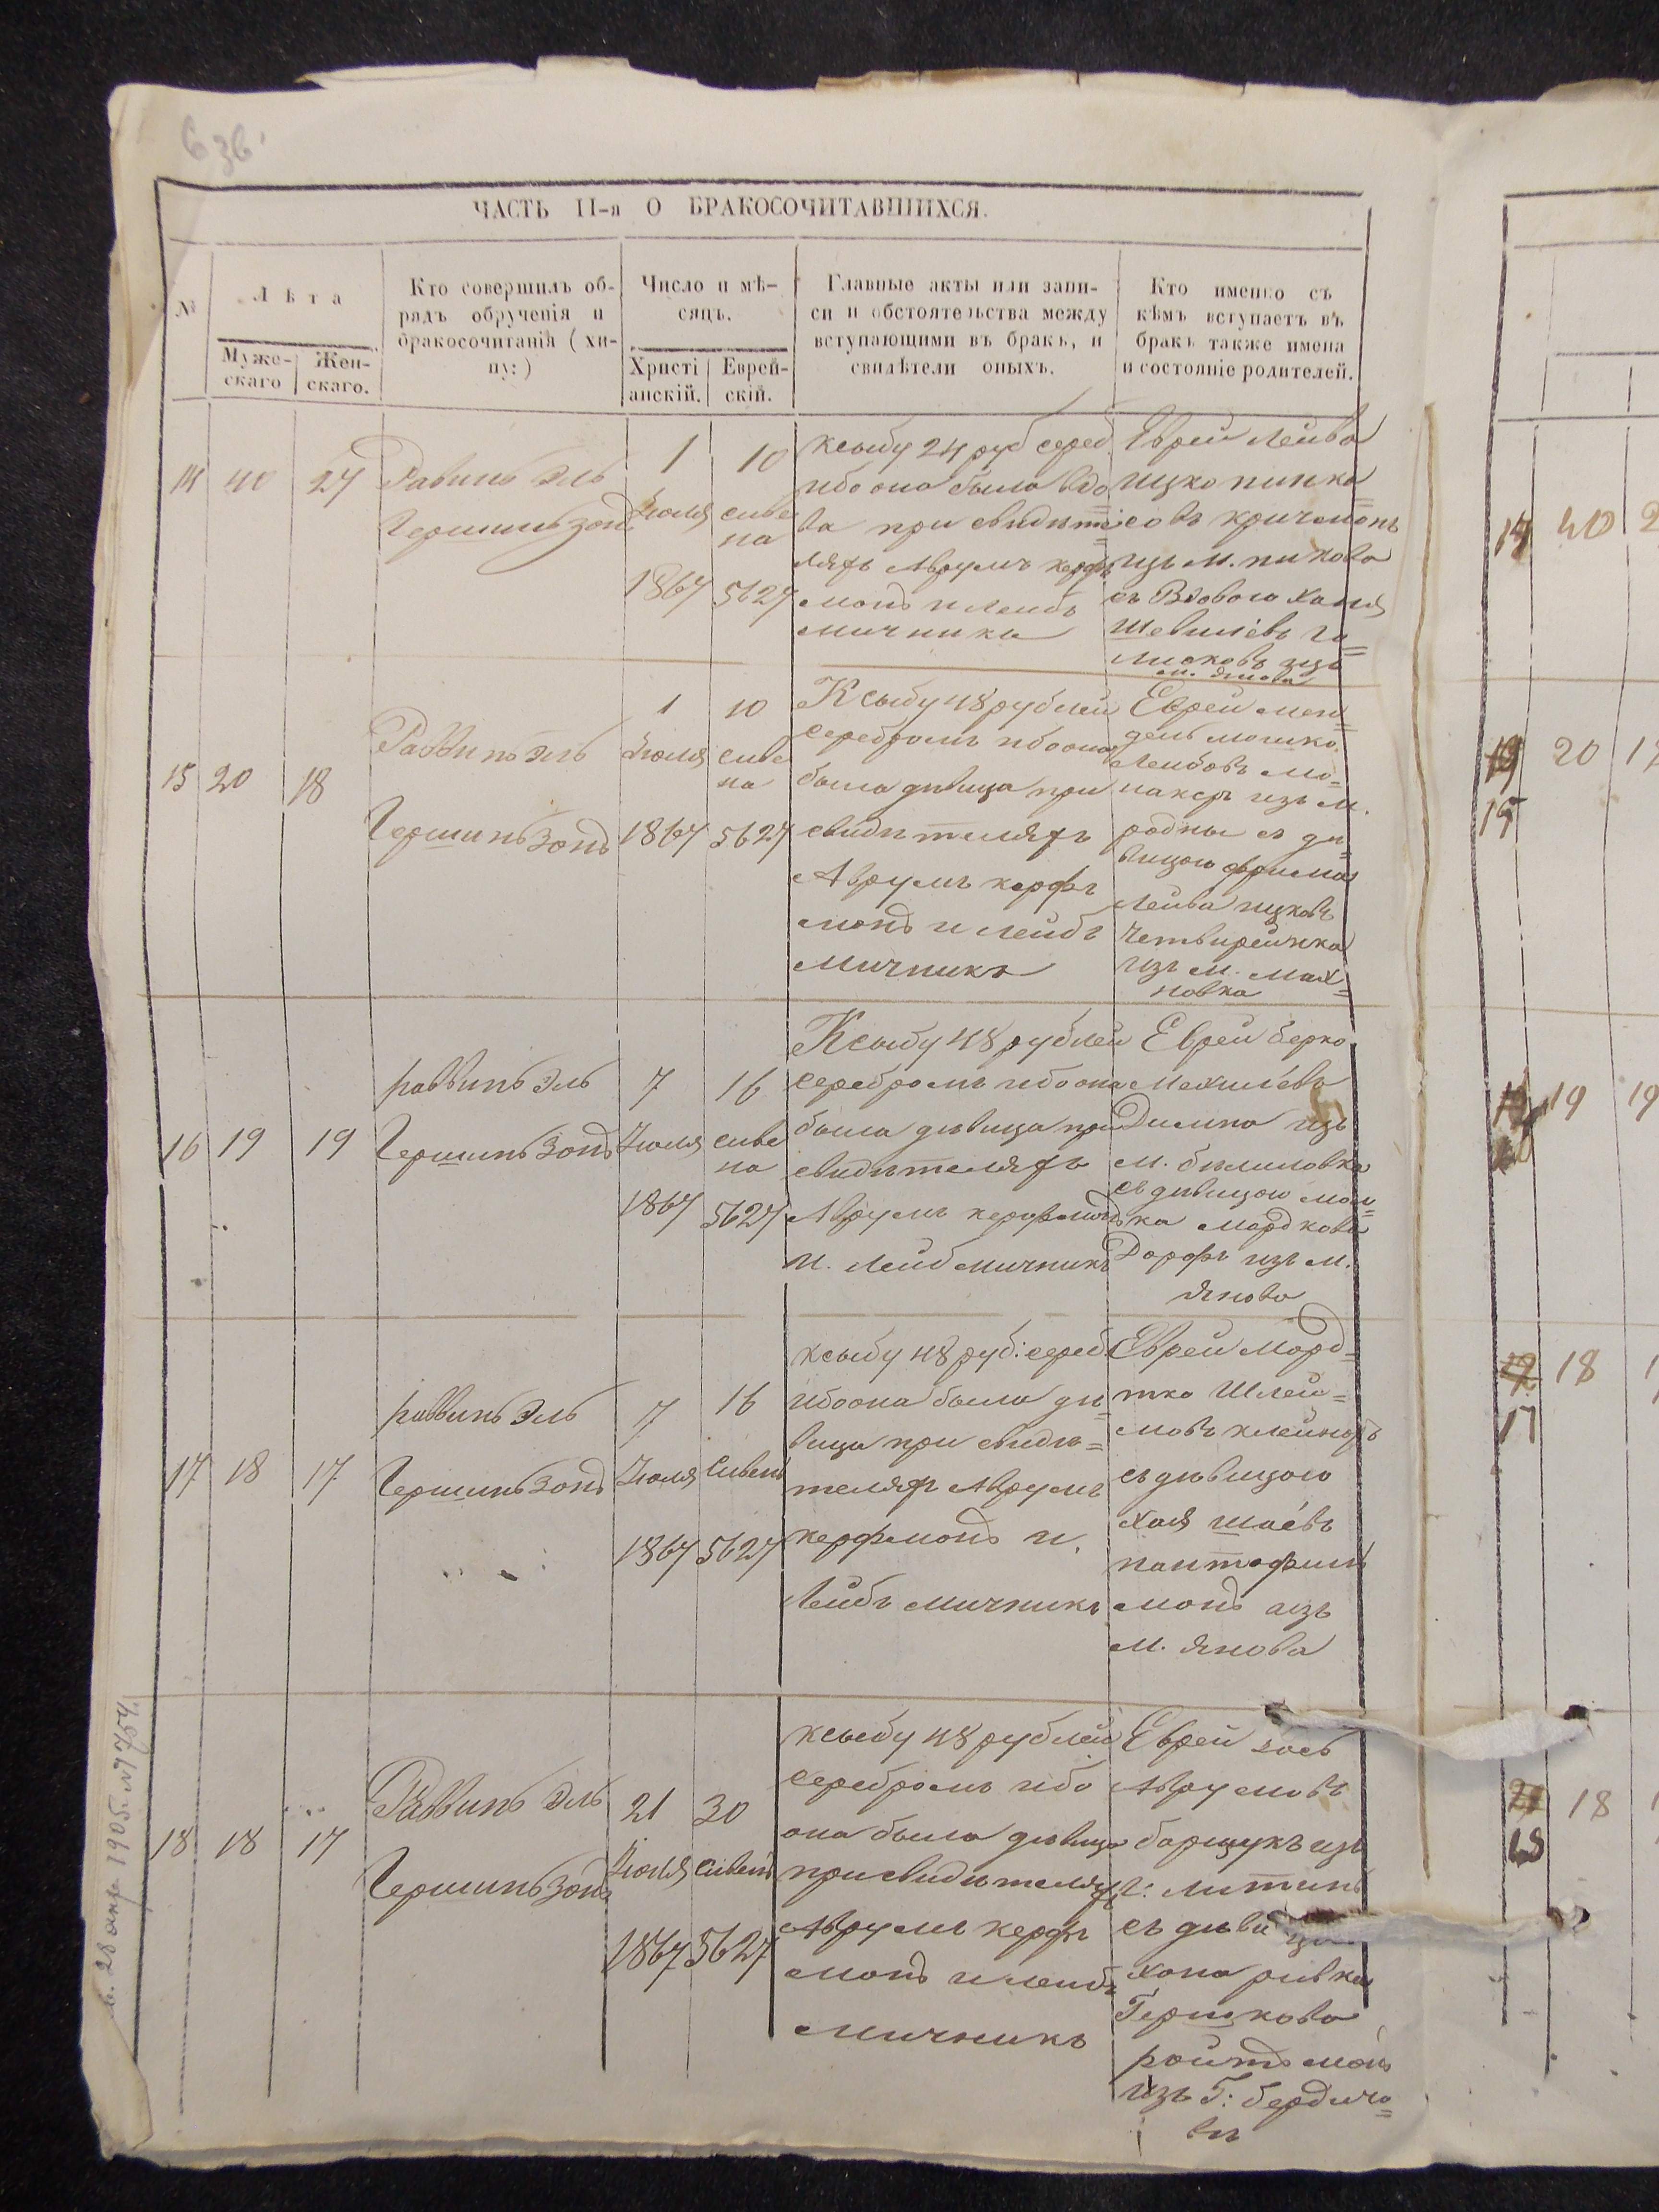 6 зв.
ЧАСТЬ II-я О БРАКОСОЧИТАВШИХСЯ.
№
Лѣта
Муже-
скаго
Жен-
скаго.
Кто совершилъ об-
рядъ обрученія и
бракосочитанія (хи-
пу:)
Число и мѣ-
сяцъ.
Христі
анскій.
Еврей-
скій.
Главные акты или запи-
си и обстоятельства между
вступающими въ бракъ, и
свидѣтели оныхъ.
Кто именно съ
кѣмъ вступаетъ въ
бракъ также имена
и состояніе родителей.
14
40
27
Равинъ Эль
Гершинъ Зонд
1
Июля
1867
10
сиве
на
5627
Ксыбу 24 руб сереб.
ибо она была вдо
ва при свидѣте
ляхъ Аврумъ керфъ
монд и Леибъ
мичника
Еврей Лейва
Ицко пинка=
совъ кричмонъ
изъ М. пикова
съ Вдовою Ханя
Шевилевъ га=
лисковъ изъ
м. Янова
15
20
18
Раввинъ Эль
Гершинъ Зондъ
1
Июля
1867
10
сиве
на
5627
Ксыбу 48 рублей
серебромъ ибо она
была дѣвица при
свидѣтеляхъ
Аврумъ керфъ
монд и Лейбъ
Мичникъ
Еврей мен=
дель мошко.
Леибовъ мо=
наксръ изъ м.
родны съ дѣ=
вицою фрима
Лейва ицковъ
Четвирейнка
изъ м. Мах=
новка
16
19
19
раввинъ Эль
Гершинъ Зондъ
7
Июля
1867
16
сиве
на
5627
Ксыбу 48 рублей
серебромъ ибо она
была дѣвица при
свидѣтеляхъ
Аврумъ керфмондъ
И. Лейб Мичникъ
Еврей Берко
Мехилевъ
Димна изъ
м. билиловка
съ дѣвицою мал=
ка Мордкова
Дорфъ изъ М.
Янова
17
18
17
раввинъ Эль
Гершинъ Зондъ
7
Июля
1867
16
Сивень
5627
ксыбу 48 руб: сереб
ибо она была дѣ=
вица при свидѣ=
теляхъ Аврумъ
керфмондъ и.
Лейбъ Мичникъ
Еврей Морд=
тко Шлей=
мовъ клейноръ
съ дѣвицою
Хая Шаевъ
пантофил
монд изъ
М. Янова
18
18
17
Раввинъ Эль
Гершинъ Зонд
21
Июля
1867
30
сивень
5627
ксыбу 48 рублей
серебромъ ибо
она была дѣвица
при свидѣтеляхъ
Аврумъ керфъ
монд и леибъ
Мичникъ
Еврей Іось
Аврумовъ
борщукъ изъ
г: Литинъ
съ дѣви
хана ривка
Гершкова
ройтъ ман
изъ Г: бердиче=
въ
14
40
2
15
20
19
19
17
18
18
18